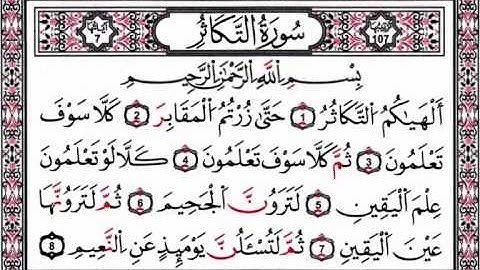 107
سُورَةُ التَّكَاثُرِ
آياتها
7
بِسْمِ اللَّهِ الرَّحْمَٰنِ الرَّحِيمِ
أَلْهَىٰكُمُ التَّكَاثُرُ 1 حَتَّىٰ زُرْتُمُ الْمَقَابِرَ 2 كَلَّا سَوْفَ
تَعْلَمُونَ 3 ثُمَّ كَلَّا سَوْفَ تَعْلَمُونَ 4 كَلَّا لَوْ تَعْلَمُونَ
عِلْمَ الْيَقِينِ 5 لَتَرَوُنَّ الْجَحِيمَ 6 ثُمَّ لَتَرَوُنَّهَا
عَيْنَ الْيَقِينِ 7 ثُمَّ لَتُسْـَٔلُنَّ يَوْمَئِذٍ عَنِ النَّعِيمِ 8